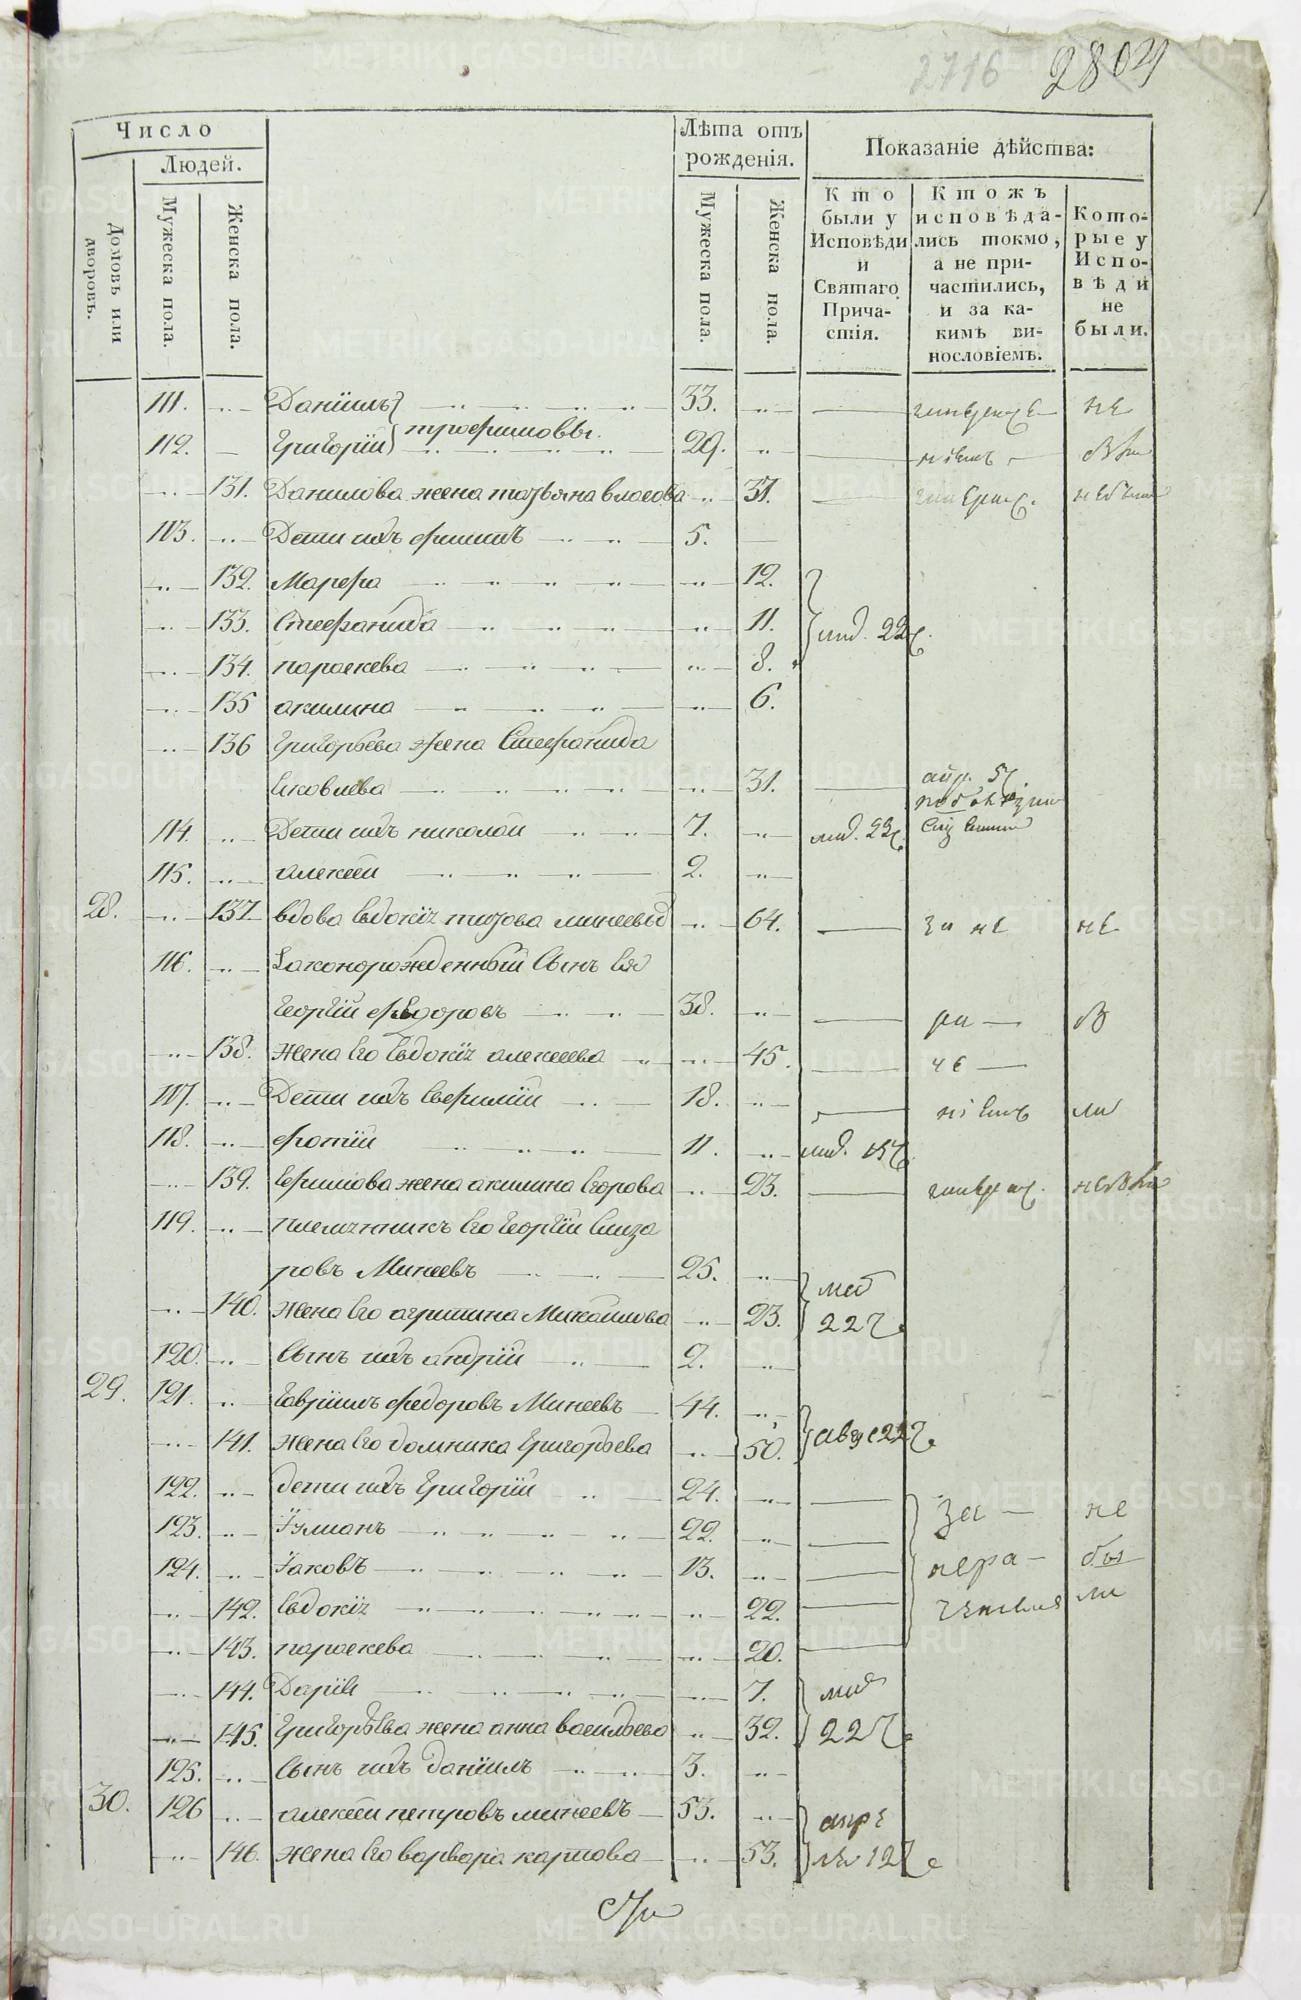 2716 2804
Число
Людей.
Домовъ или дворовъ.
Мужеска пола.
Женска пола.
Лѣта отъ рожденія.
Мужеска пола.
Женска пола.
Показаніе дѣйства:
Кто были у Исповѣди и Святаго Причастія.
Ктожъ исповѣдались токмо, а не причастились, и за какимъ винословіемъ.
Которые у Исповѣди не были.
111. Даніилъ 33. не
112. Григорій трофимовы. 29.
131. Данилова жена татьяна власова 37.
113. Дети ихъ филипъ 5.
132. Марфа 12.
133. Стефанида 11. 22
134. параскева 8.
135 акилина 6.
136 Григорьева жена Стефанида
Яковлева 31. 5
114. Дети ихъ николай 7. 22
115. алексей 2.
28. 137 вдова Евдокія титова минеевыхъ 64. за не не
116. Законорожденный Сынъ Ея
Георгій федоровъ 38. ра
138. жена Его Евдокія алексеева 45. че
117. Дети ихъ 18. ли
118. фотій 11. 15
139. жена акилина Егорова 23.
119. племянникъ Его Георгій Елиза
ровъ Минеевъ 25.
140. жена Его агрипина Михайлова 23. 22
120. Сынъ ихъ андрій 2.
29. 121. Гавріилъ федоровъ Минеевъ 44.
141. жена Его домника Григорьева 50. авгус 22
122. дети ихъ Григорій 24. за не
123. Іулианъ 22.
124. Іаковъ 13. нера бы
142. Евдокія 22. ли
143. параскева 20.
144. Дарія 7.
145. Григорьева жена анна васильева 32. 22
125. Сынъ ихъ даніилъ 3.
30. 126 алексей петровъ минеевъ 53. апре
146. жена Его варвара карпова 53. ля 12